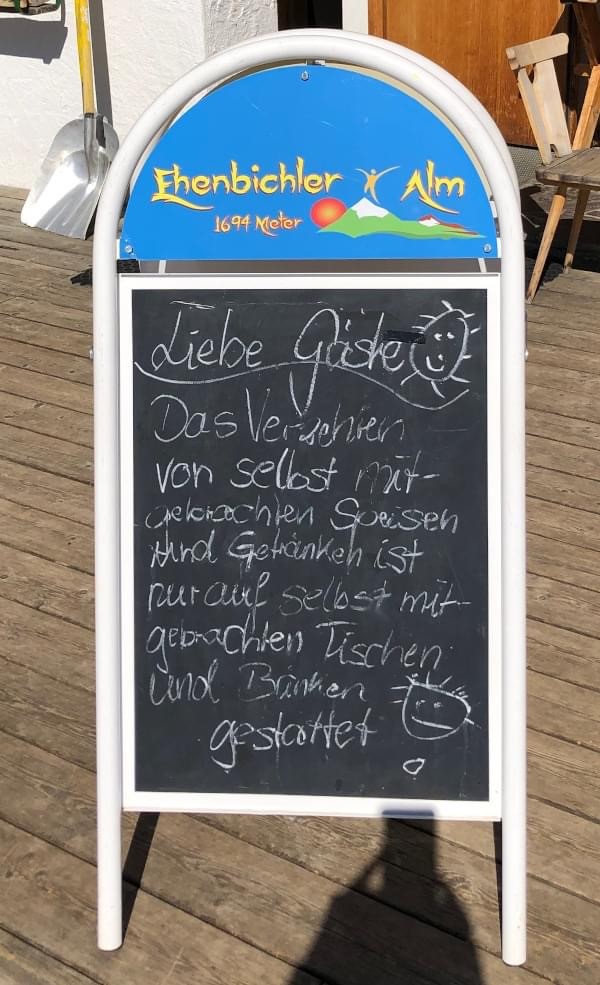 Ehenbichler Alm
1694 Meter
Liebe Gäste
Das Verzehren
von selbst mit-
gebrachten Speisen
und Getränken ist
nur auf selbst mit-
gebrachten Tischen
und Bänken
gestattet